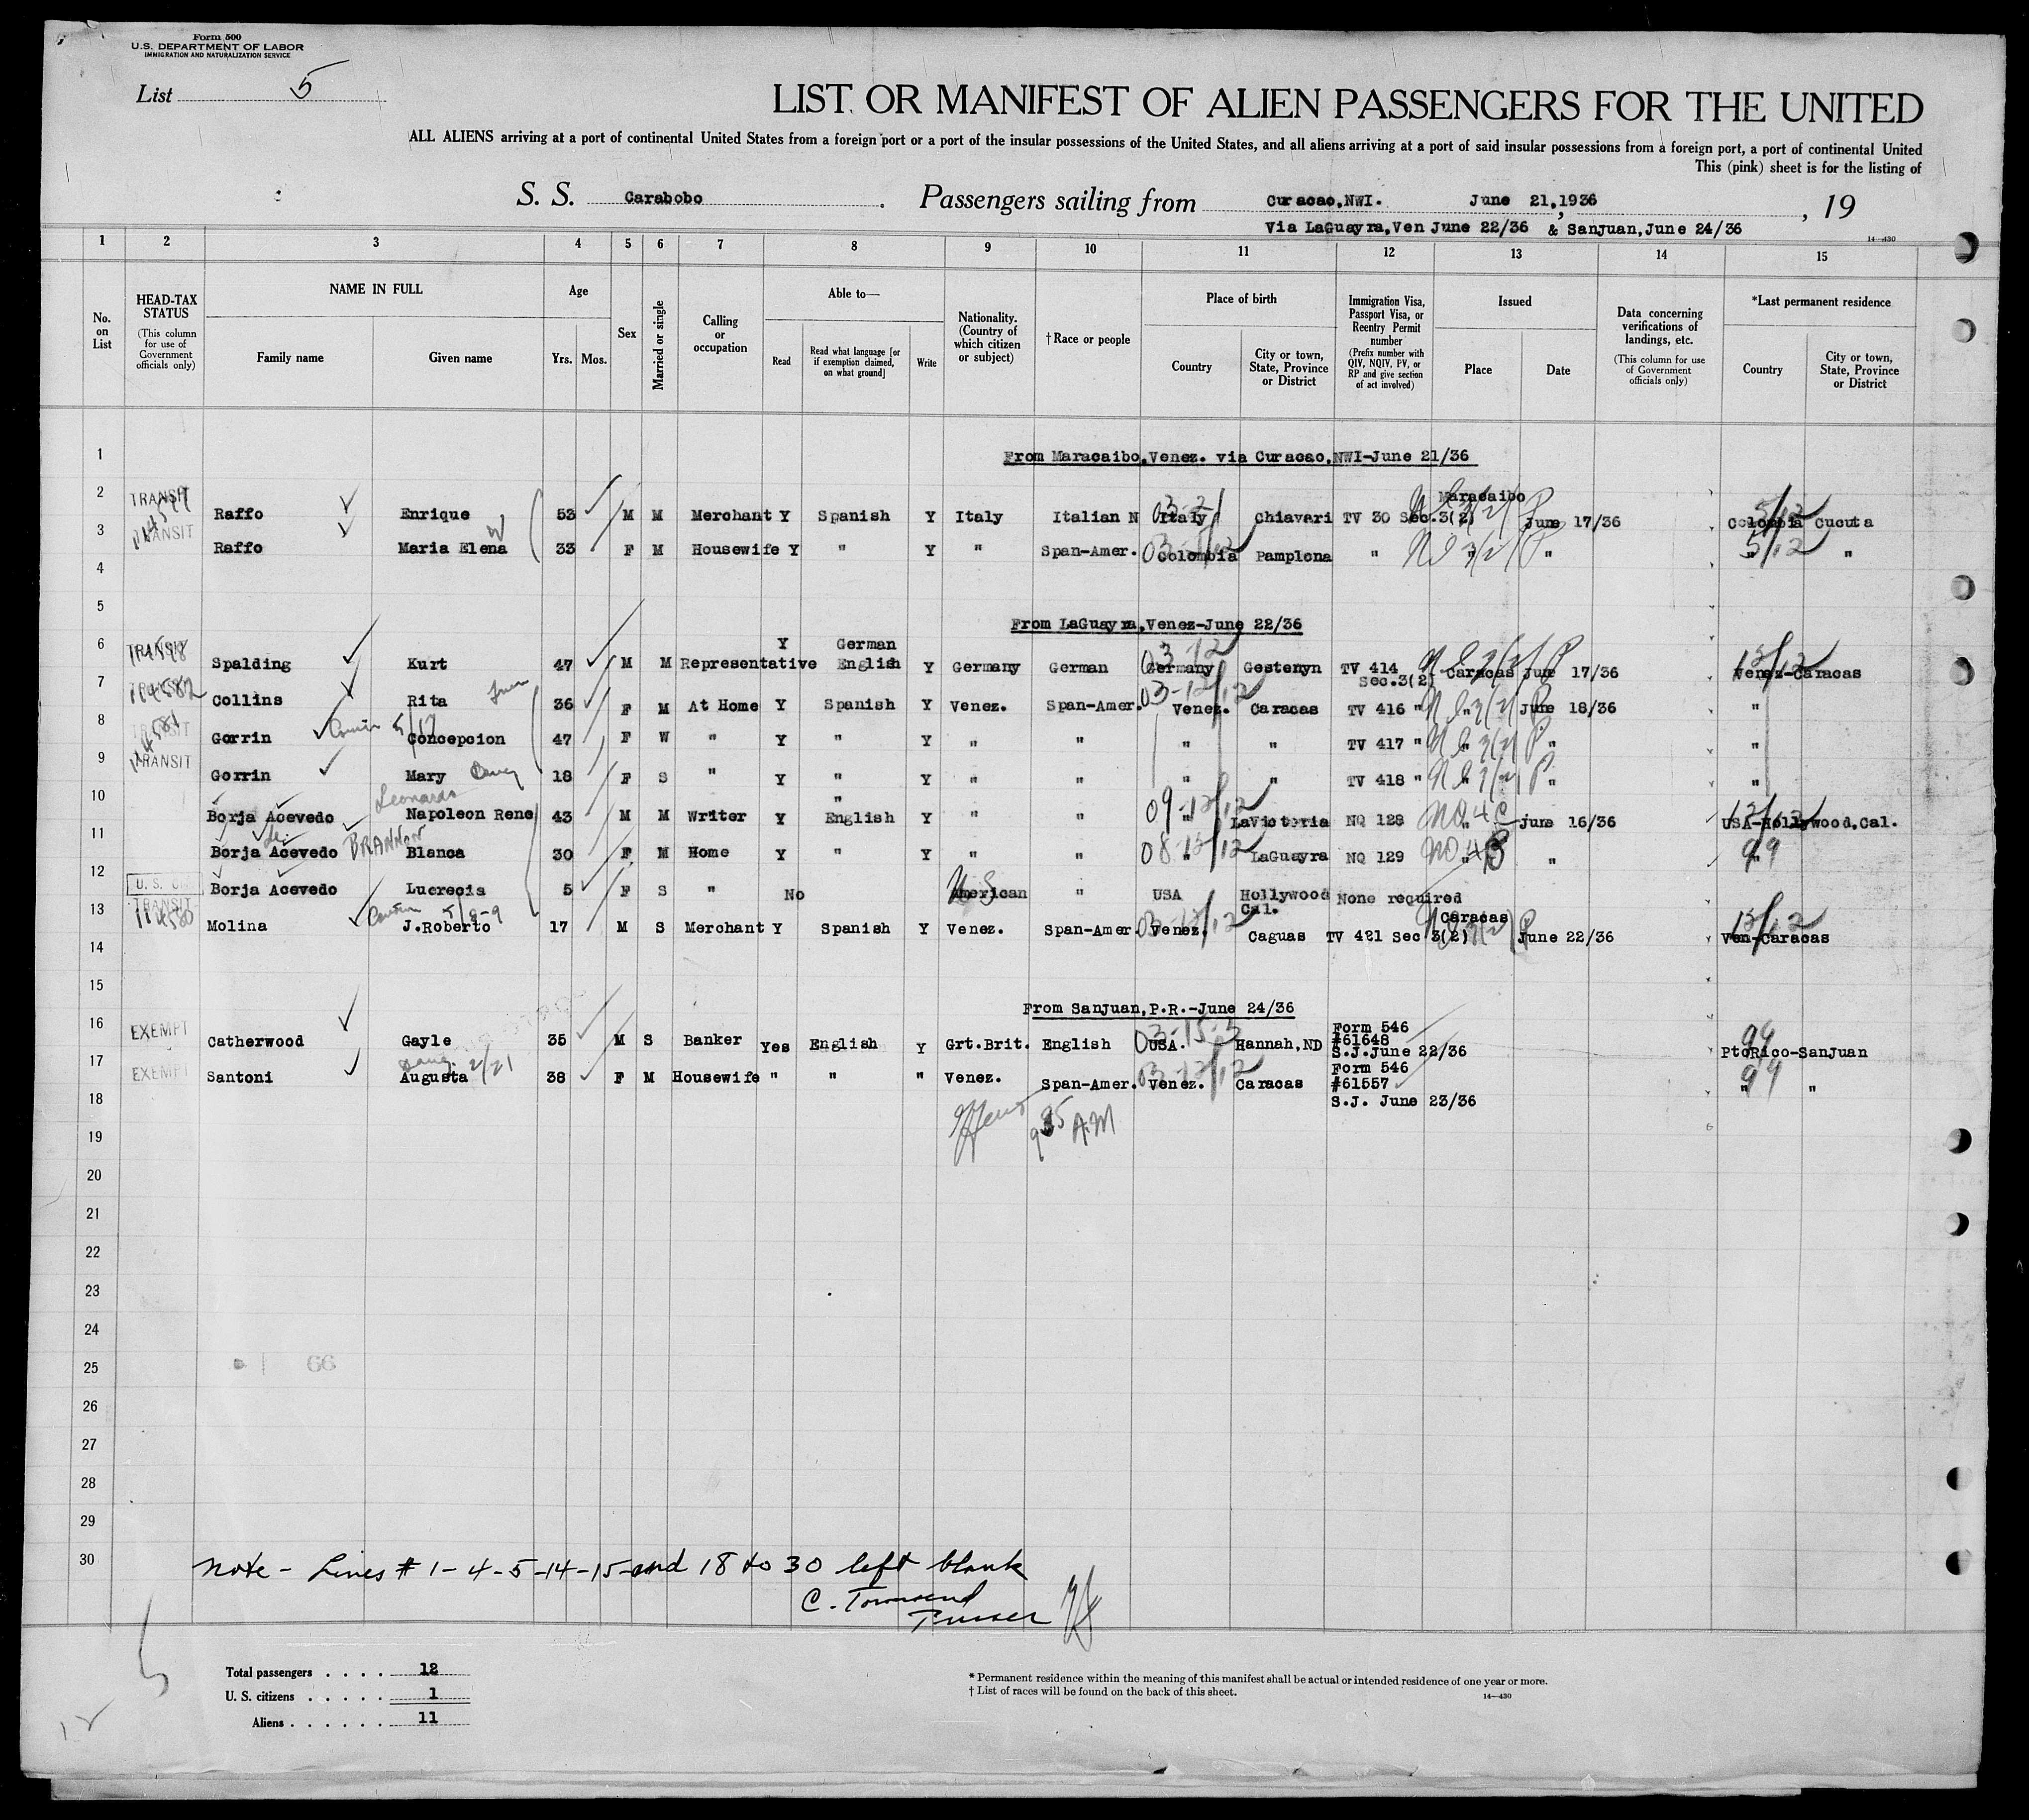 Form 500
U.S. DEPARTMENT OF LABOR
IMMIGRATION AND NATURALIZATION SERVICE
List 5
LIST OR MANIFEST OF ALIEN PASSENGERS FOR THE UNITED
ALL ALIENS arriving at a port of continental United States from a foreign port or a port of the insular possessions of the United States, and all aliens arriving at a port of said insular possessions from a foreign port, a port of continental United
This (pink) sheet is for the listing of
S. S. Carabobo. Passengers sailing from Curacao,NWI. June 21,1936, 19
Via LaGuayra,Ven June 22/36 & SanJuan,June 24/36
14—430
1 2 3 4 5 6 7 8 9 10 11 12 13 14 15
No. on List
HEAD-TAX STATUS (This column for use of Government officials only)
NAME IN FULL Family name Given name
Age Yrs. Mos.
Sex
Married or single
Calling or occupation
Able to— Read Read what language [or if exemption claimed, on what ground] Write
Nationality. (Country of which citizen or subject)
† Race or people
Place of birth Country City or town, State, Province or District
Immigration Visa, Passport Visa, or Reentry Permit number (Prefix number with QIV, NQIV, PV, or RP and give section of act involved)
Issued Place Date
Data concerning verifications of landings, etc. (This column for use of Government officials only)
*Last permanent residence Country City or town, State, Province or District
1 From Maracaibo,Venez. via Curacao,NWI-June 21/36
2 TRANSIT Raffo Enrique 53 M M Merchant Y Spanish Y Italy Italian N Italy Chiavari TV 30 Sec.3(2) Maracaibo June 17/36 Colombia Cucuta
3 TRANSIT Raffo Maria Elena W 33 F M Housewife Y " Y " Span-Amer. Colombia Pamplona " " " " "
4
5 From LaGuayra,Venez-June 22/36
6 TRANSIT Spalding Kurt 47 M M Representative Y German English Y Germany German Germany Gestenyn TV 414 Sec.3(2) Caracas June 17/36 Venez-Caracas
7 114582 Collins Rita 36 F M At Home Y Spanish Y Venez. Span-Amer. Venez. Caracas TV 416 " " June 18/36 "
8 Gorrin Concepcion 47 F W " Y " Y " " " " TV 417 " " " "
9 TRANSIT Gorrin Mary 18 F S " Y " Y " " " " TV 418 " " " "
10 Borja Acevedo Leonardo Napoleon Rene 43 M M Writer Y " English Y " " " LaVictoria NQ 128 " June 16/36 USA-Hollywood,Cal.
11 Borja de Acevedo BRANNON Blanca 30 F M Home Y " Y " " " LaGuayra NQ 129 " " "
12 Borja Acevedo Lucrecia 5 F S " No American US " USA Hollywood Cal. None required
13 TRANSIT 114580 Molina J.Roberto 17 M S Merchant Y Spanish Y Venez. Span-Amer. Venez. Caguas TV 421 Sec 3(2) Caracas June 22/36 Ven-Caracas
14
15 From SanJuan,P.R.-June 24/36
16 EXEMPT Catherwood Gayle 35 M S Banker Yes English Y Grt.Brit. English USA. Hannah,ND Form 546 #61648 S.J.June 22/36 PtoRico-SanJuan
17 EXEMPT Santoni Augusta 38 F M Housewife " " " Venez. Span-Amer. Venez. Caracas Form 546 #61557 S.J. June 23/36 " "
18
A.M
19
20
21
22
23
24
25 66
26
27
28
29
30
Note - Lines # 1-4-5-14-15-and 18 to 30 left blank
C. Townsend
Purser
Total passengers . . . . 12
U. S. citizens . . . . . 1
Aliens . . . . . . 11
* Permanent residence within the meaning of this manifest shall be actual or intended residence of one year or more.
† List of races will be found on the back of this sheet.
14—430